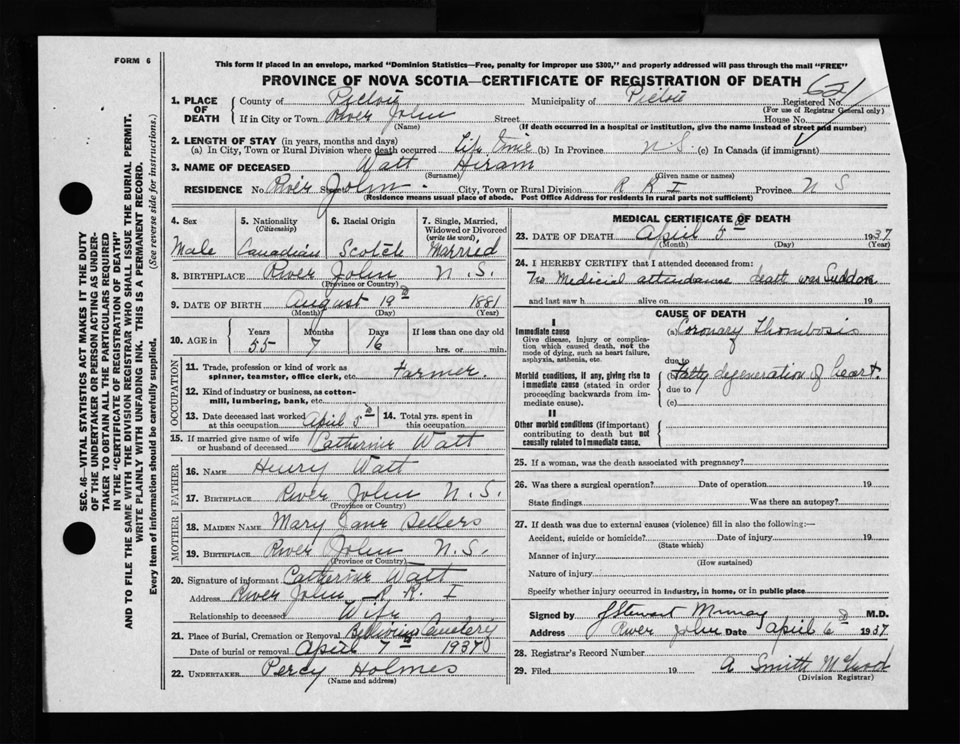 FORM 6
This form if placed in an envelope, marked "Dominion Statistics—Free, penalty for improper use $300," and properly addressed will pass through the mail "FREE"
PROVINCE OF NOVA SCOTIA—CERTIFICATE OF REGISTRATION OF DEATH
621
Registered No.
(For use of Registrar General only)
1. PLACE OF DEATH { County of Pictou Municipality of Pictou
If in City or Town River John Street House No.
(Name) (If death occurred in a hospital or institution, give the name instead of street and number)
2. LENGTH OF STAY (in years, months and days)
(a) In City, Town or Rural Division where death occurred Life Time (b) In Province N.S. (c) In Canada (if immigrant)
3. NAME OF DECEASED Watt Hiram
(Surname) (Given name or names)
RESIDENCE No. River John Street City, Town or Rural Division R R I Province N S
(Residence means usual place of abode. Post Office Address for residents in rural parts not sufficient)
4. Sex Male
5. Nationality (Citizenship) Canadian
6. Racial Origin Scotch
7. Single, Married, Widowed or Divorced (write the word) Married
8. BIRTHPLACE River John N.S.
(Province or Country)
9. DATE OF BIRTH August 19 1881
(Month) (Day) (Year)
10. AGE in { Years Months Days If less than one day old
55 7 16 hrs. or min.
OCCUPATION
11. Trade, profession or kind of work as spinner, teamster, office clerk, etc. Farmer.
12. Kind of industry or business, as cotton-mill, lumbering, bank, etc.
13. Date deceased last worked at this occupation April 5
14. Total yrs. spent in this occupation
15. If married give name of wife or husband of deceased Catherine Watt
FATHER
16. NAME Henry Watt
17. BIRTHPLACE River John N.S.
(Province or Country)
MOTHER
18. MAIDEN NAME Mary Jane Sellers
19. BIRTHPLACE River John N.S.
(Province or Country)
20. Signature of informant Catherine Watt
Address River John R.R. I
Relationship to deceased Wife
21. Place of Burial, Cremation or Removal Cemetery
Date of burial or removal April 7 1937
22. UNDERTAKER Percy Holmes
(Name and address)
MEDICAL CERTIFICATE OF DEATH
23. DATE OF DEATH April 5 1937
(Month) (Day) (Year)
24. I HEREBY CERTIFY that I attended deceased from:
No Medicial attendance death was Sudden
and last saw h alive on 19
CAUSE OF DEATH
I
Immediate cause
Give disease, injury or complication which caused death, not the mode of dying, such as heart failure, asphyxia, asthenia, etc.
(a) Coronary Thombosis
due to
Morbid conditions, if any, giving rise to immediate cause (stated in order proceeding backwards from immediate cause).
(b) Fatty degeneration of heart.
due to
(c)
II
Other morbid conditions (if important) contributing to death but not causally related to immediate cause.
25. If a woman, was the death associated with pregnancy?
26. Was there a surgical operation? Date of operation 19
State findings Was there an autopsy?
27. If death was due to external causes (violence) fill in also the following:—
Accident, suicide or homicide? Date of injury 19
(State which)
Manner of injury
(How sustained)
Nature of injury
Specify whether injury occurred in industry, in home, or in public place
Signed by J Stewart Murray M.D.
Address River John Date April 6 1937
28. Registrar's Record Number
29. Filed 19 A Smith
(Division Registrar)
SEC. 46—VITAL STATISTICS ACT MAKES IT THE DUTY
OF THE UNDERTAKER OR PERSON ACTING AS UNDER-
TAKER TO OBTAIN ALL THE PARTICULARS REQUIRED
IN THE "CERTIFICATE OF REGISTRATION OF DEATH"
AND TO FILE THE SAME WITH THE DIVISION REGISTRAR WHO SHALL ISSUE THE BURIAL PERMIT.
WRITE PLAINLY WITH UNFADING INK. THIS IS A PERMANENT RECORD.
Every item of information should be carefully supplied. (See reverse side for instructions.)